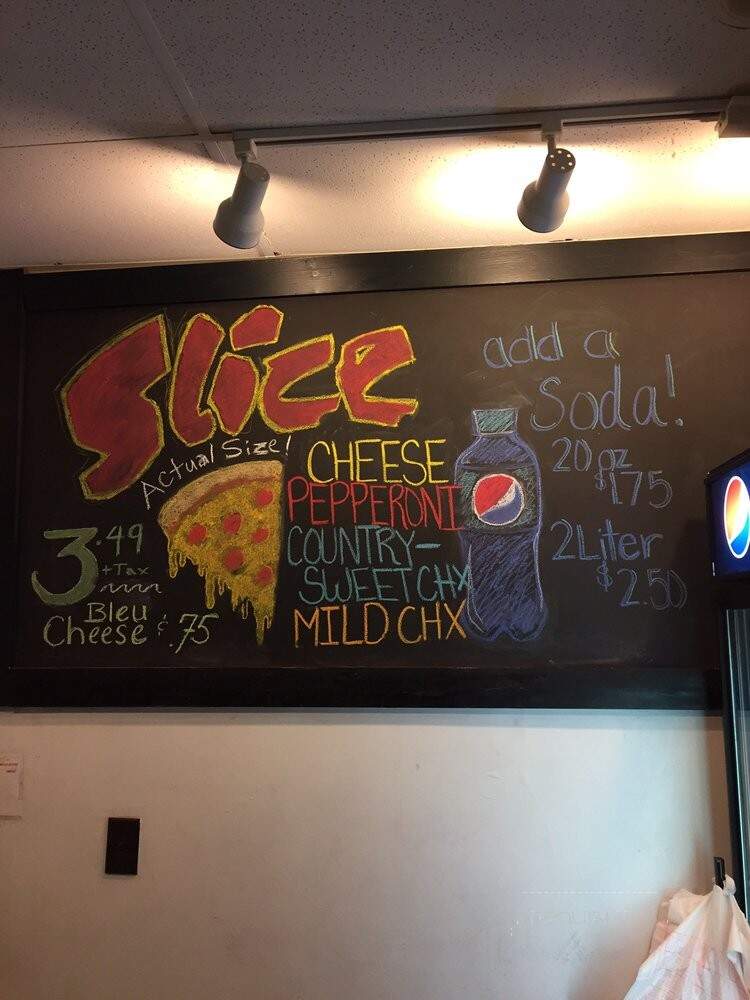 Slice
Actual Size!
3.49
+Tax
Bleu
Cheese $.75
CHEESE
PEPPERONI
COUNTRY-
SWEET CHX
MILD CHX
add a
Soda!
20 oz
$1.75
2 Liter
$2.50